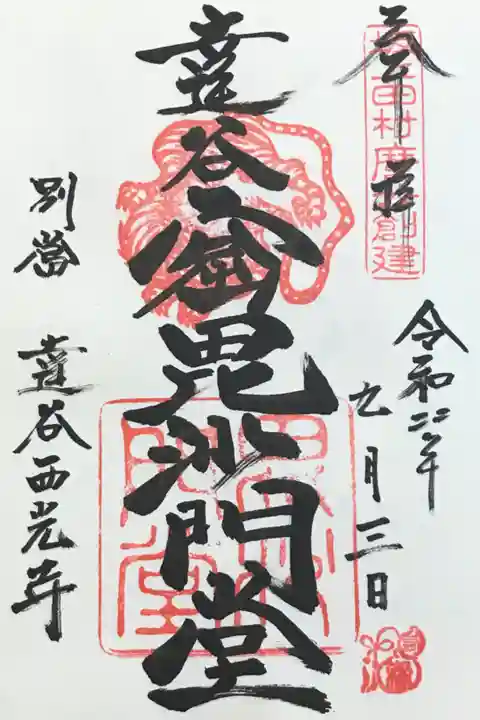 奉拝
坂上田村麿公創建
令和二年
九月三日
達谷窟毘沙門堂
別當 達谷西光寺